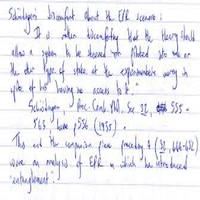 Schrödinger's discomfort about the EPR scenario:
It is rather discomforting that the theory should
allow a system to be steered or piloted into one or
the other type of state at the experimenter's mercy in
spite of his having no access to it.
Schrödinger, Proc. Camb. Phil. Soc. 31, 555 -
563, 556 (1935).
This and the companion piece preceding it (32, 446-452)
were an analysis of EPR in which he introduced
"entanglement".